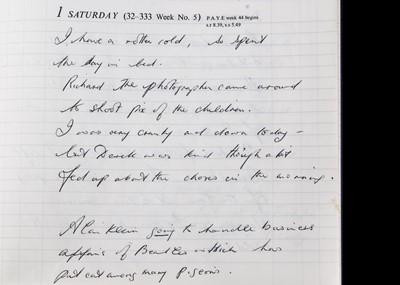 1 SATURDAY (32-333 Week No. 5) P.A.Y.E week 44 begins
s.r 8.39, s.s 5.49
I have a rotten cold, so spent
the day in bed.
Richard the photographer came around
to shoot pix of the children.
I was very crunchy and down today –
but Derek was kind though a bit
fed up about the chores in the morning.
Alan Klein going to handle business
affairs of Beatles which has
put cat among many pigeons.